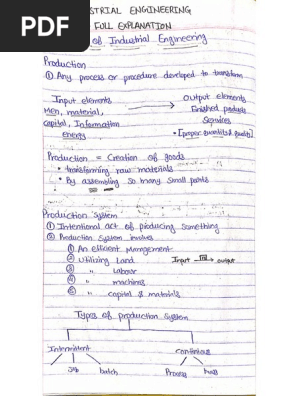 PDF
STRIAL ENGINEERING
FULL EXPLANATION
of Industrial Engineering
Production
① Any process or procedure developed to transform
Input elements → Output elements
Men, material, Finished products
Capital, Information Services
energy • [proper quantity & quality]
Production = Creation of goods
• transforming raw materials
• By assembling so many small parts
Production System
① Intentional act of producing something
② Production System involves
① An efficient Management
② Utilizing Land Input → output
③ " Labour
④ " machines
⑤ " capital & materials
Types of production system
Intermittent continuous
Job batch Process mass